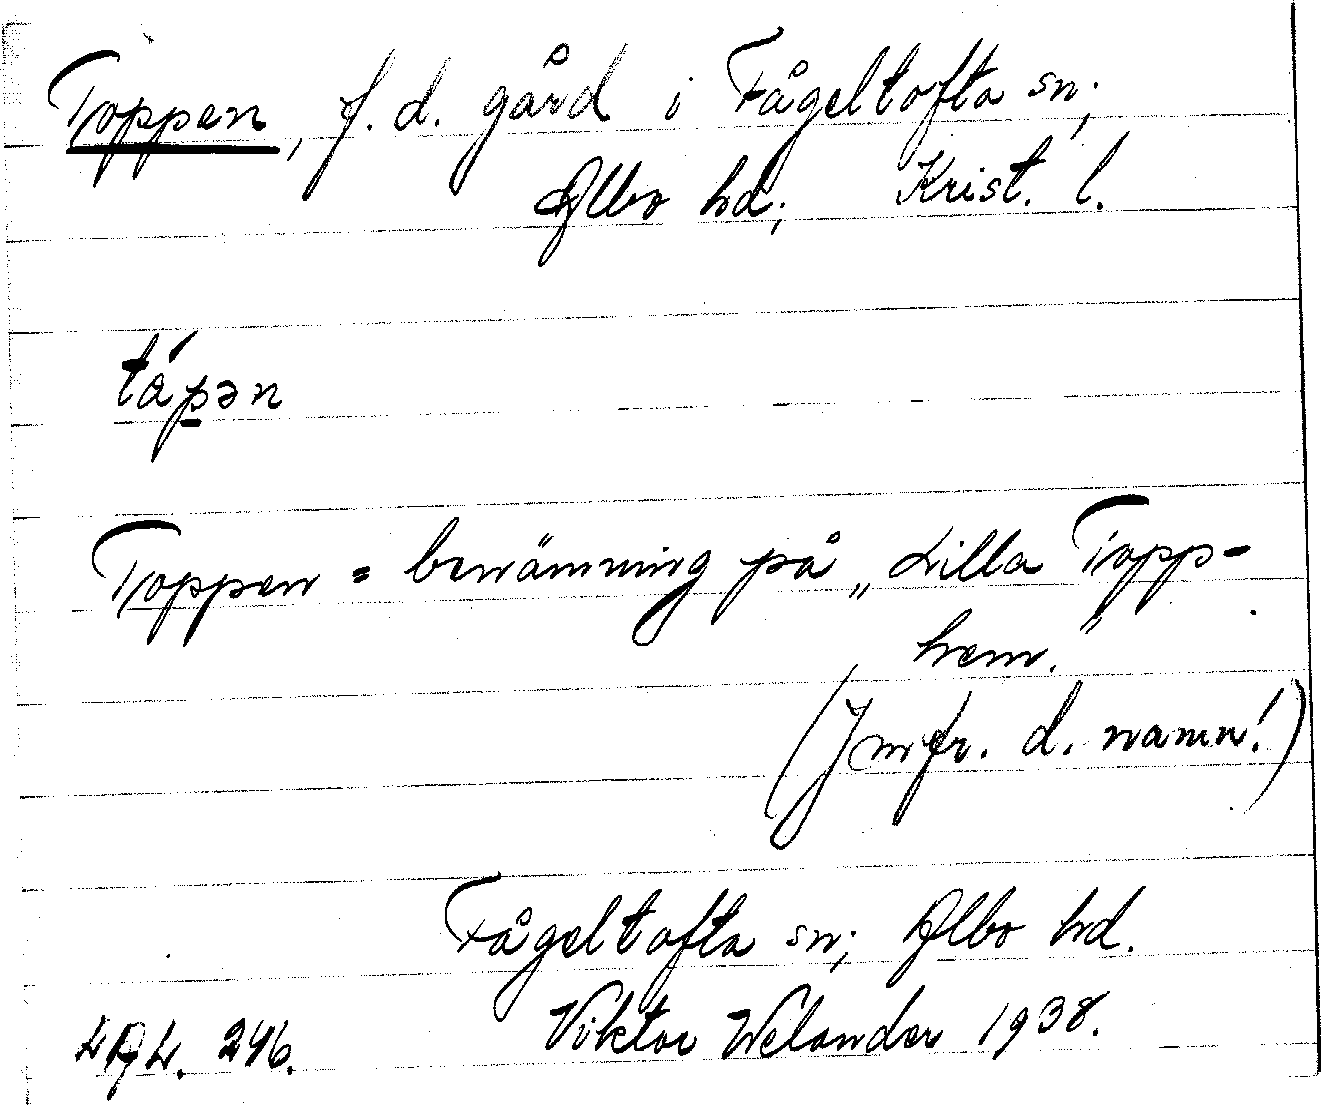 Toppen, f.d. gård i Fågeltofta sn;
Albo hd; Krist. l.
tápən
Toppen = benämning på „Lilla Topp-
hem."
(Jmfr. d. namn!)
Fågeltofta sn; Albo hd.
LAL. 246. Viktor Welander 1938.